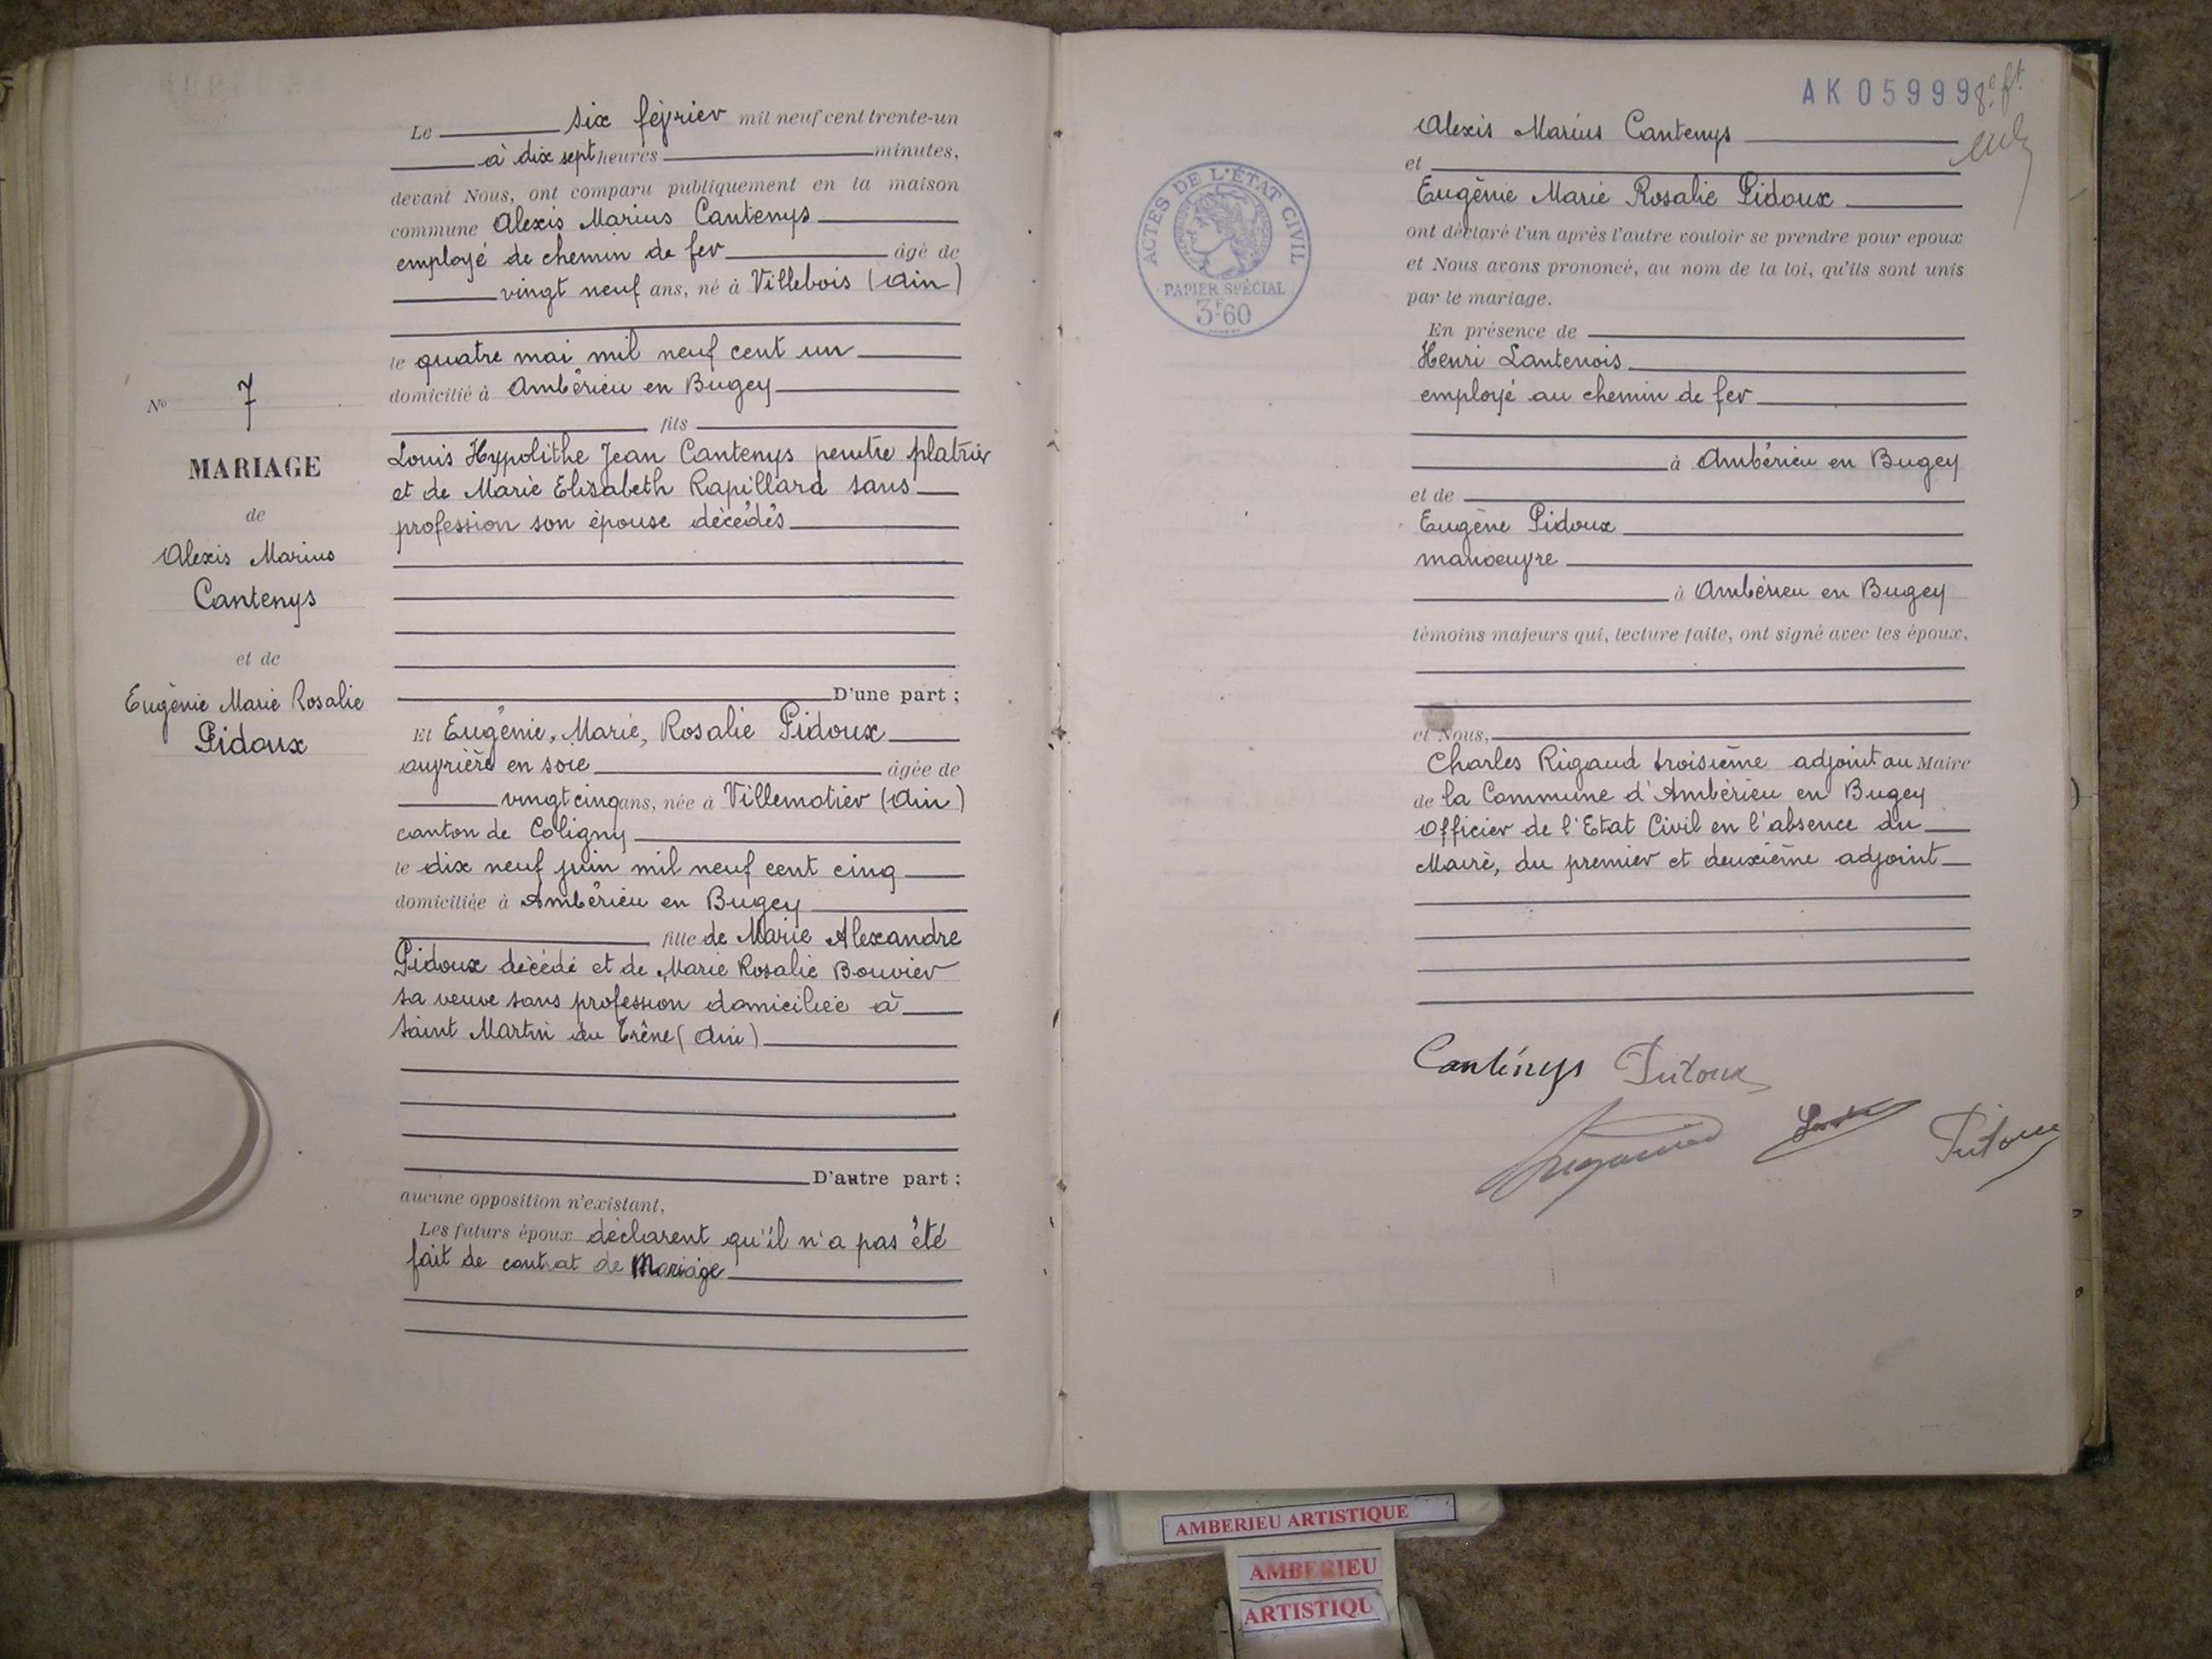 Le six février mil neuf cent trente-un
à dix sept heures minutes,
devant Nous, ont comparu publiquement en la maison
commune Alexis Marius Cantenys
employé de chemin de fer âgé de
vingt neuf ans, né à Villebois (Ain)
le quatre mai mil neuf cent un
domicilié à Ambérieu en Bugey
fils
Louis Hypolithe Jean Cantenys peintre platrier
et de Marie Elisabeth Rapillard sans
profession son épouse décédés
D'une part ;
Et Eugénie, Marie, Rosalie Pidoux
ouvrière en soie âgée de
vingt cinq ans, née à Villemotier (Ain)
canton de Coligny
le dix neuf juin mil neuf cent cinq
domiciliée à Ambérieu en Bugey
fille de Marie Alexandre
Pidoux décédé et de Marie Rosalie Bouvier
sa veuve sans profession domiciliée à
Saint Martin du Frêne (Ain)
D'autre part ;
aucune opposition n'existant,
Les futurs époux déclarent qu'il n'a pas été
fait de contrat de Mariage
No 7
MARIAGE
de
Alexis Marius
Cantenys
et de
Eugénie Marie Rosalie
Pidoux
AK 05999
ACTES DE L'ÉTAT CIVIL
PAPIER SPÉCIAL
3F60
Alexis Marius Cantenys
et
Eugénie Marie Rosalie Pidoux
ont déclaré l'un après l'autre vouloir se prendre pour epoux
et Nous avons prononcé, au nom de la loi, qu'ils sont unis
par le mariage.
En présence de
Henri Lantenois
employé au chemin de fer
à Ambérieu en Bugey
et de
Eugène Pidoux
manoeuvre
à Ambérieu en Bugey
témoins majeurs qui, lecture faite, ont signé avec les époux,
et Nous,
Charles Rigaud troisième adjoint au Maire
de la Commune d'Ambérieu en Bugey
Officier de l'Etat Civil en l'absence du
Maire, du premier et deuxième adjoint
Cantenys Pidoux
Pidoux
AMBERIEU ARTISTIQUE
AMBERIEU
ARTISTIQU